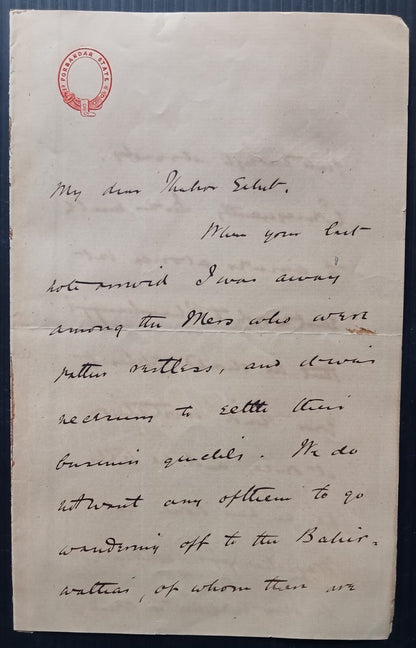 PORBANDAR STATE
My dear Thakor Saheb,
When your last
note arrived I was away
among the Mers who were
rather restless, and it was
necessary to settle their
business quickly. We do
not want any of them to go
wandering off to the Bahir-
wattias, of whom there are